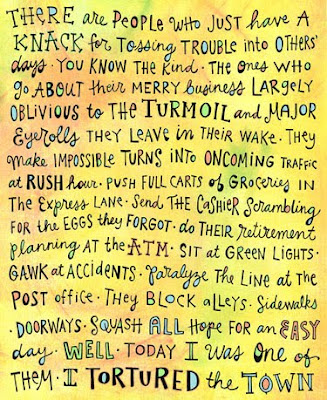 THERE are PEOPLE WHO JUST HAVE A
KNACK for TOSSING TROUBLE into OTHERS'
days · YOU KNOW THE KIND · THE ONES WHO
go ABOUT their MERRY business LARGELY
OBLIVIOUS to THE TURMOIL and MAJOR
EYerolls THEY LEAVE in THEIR WAKE · THEY
make IMPOSSIBLE TURNS INTO ONCOMING TRAFFIC
at RUSH hour · PUSH FULL CARTS of GROCERIES IN
THE EXPRESS LANE · Send THE CASHIER SCRAMBLING
FOR the EGGS they FORGOT · do THEIR retirement
planning AT the ATM · SIT at GREEN LIGHTS ·
GAWK at ACCIDENTS · Paralyze THE LINE at THE
POST office · THEY BLOCK alleys · Sidewalks
· DOORWAYS · SQUASH ALL HOPE FOR an EASY
day · WELL · TODAY I WAS ONE OF
THEM · I TORTURED the TOWN